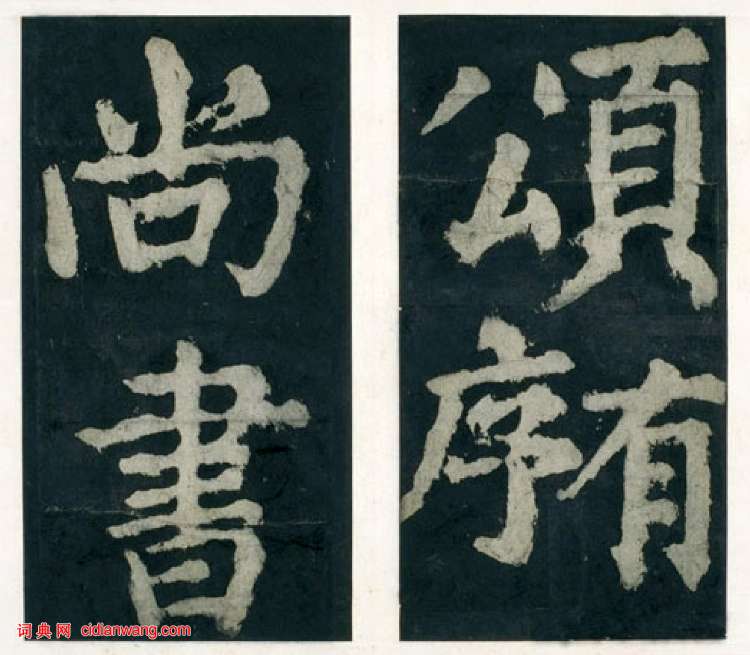 頌有序
尚書
词典网 cidianwang.com